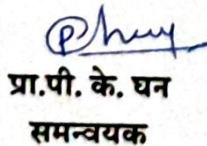 प्रा.पी. के. घन
समन्वयक